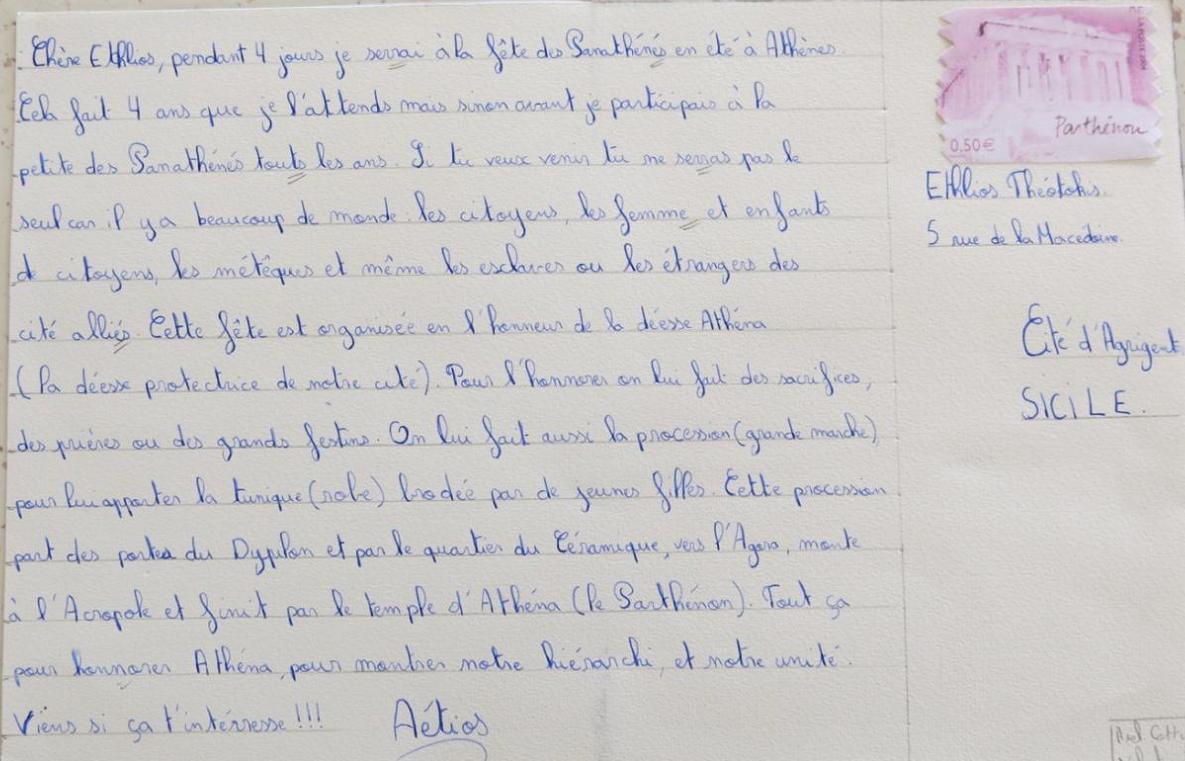 Chère Ethlios, pendant 4 jours je serrai à la fête des Panathénés en été à Athènes.
Cela fait 4 ans que je l'attends mais sinon avant je participais à la
petite des Panathénés touts les ans. Si tu veux venir tu ne serras pas le
seul car il y a beaucoup de monde : les citoyens, les femme et enfants
de citoyens, les métèques et même les esclaves ou les étrangers des
cité alliés. Cette fête est organisée en l'honneur de la déesse Athéna
(la déesse protectrice de notre cité). Pour l'honnorer on lui fait des sacrifices,
des prières ou des grands festins. On lui fait aussi la procession (grande marche)
pour lui apporter la tunique (robe) brodée par de jeunes filles. Cette procession
part des portes du Dypilon et par le quartier du Céramique, vers l'Agora, monte
à l'Acropole et finit par le temple d'Athéna (le Parthénon). Tout ça
pour honnorer Athéna, pour montrer notre hiérarchi, et notre unité.
Viens si ça t'intérresse !!! Aétios
Parthénon
0.50€
Ethlios Théotokis.
5 rue de la Macedoine.
Cité d'Agrigent
SICILE.